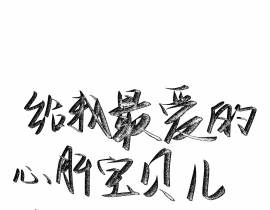 给我最爱的
心肝宝贝儿